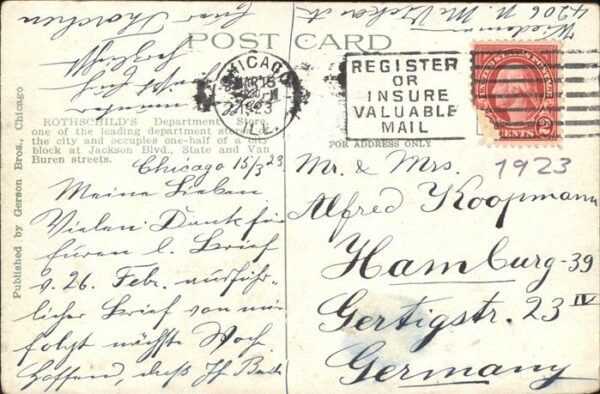 POST CARD
CHICAGO
MAR 15
1923
ILL.
REGISTER
OR
INSURE
VALUABLE
MAIL
CENTS
2
ROTHSCHILD'S Department Store,
one of the leading department stores
the city and occupies one-half of a city
block at Jackson Blvd., State and Van
Buren streets.
FOR ADDRESS ONLY
Published by Gerson Bros., Chicago
Chicago 15/3 23
Meine Lieben
Vielen Dank für
Euren l. Brief
v. 26. Febr. ausführ-
licher Brief von mir
folgt nächste Woch.
Hoffend, daß Ihr
munter
herzlichst
4206 N.
Mr. & Mrs.
1923
Alfred Koopmann
Hamburg-39
Gertigstr. 23 IV
Germany